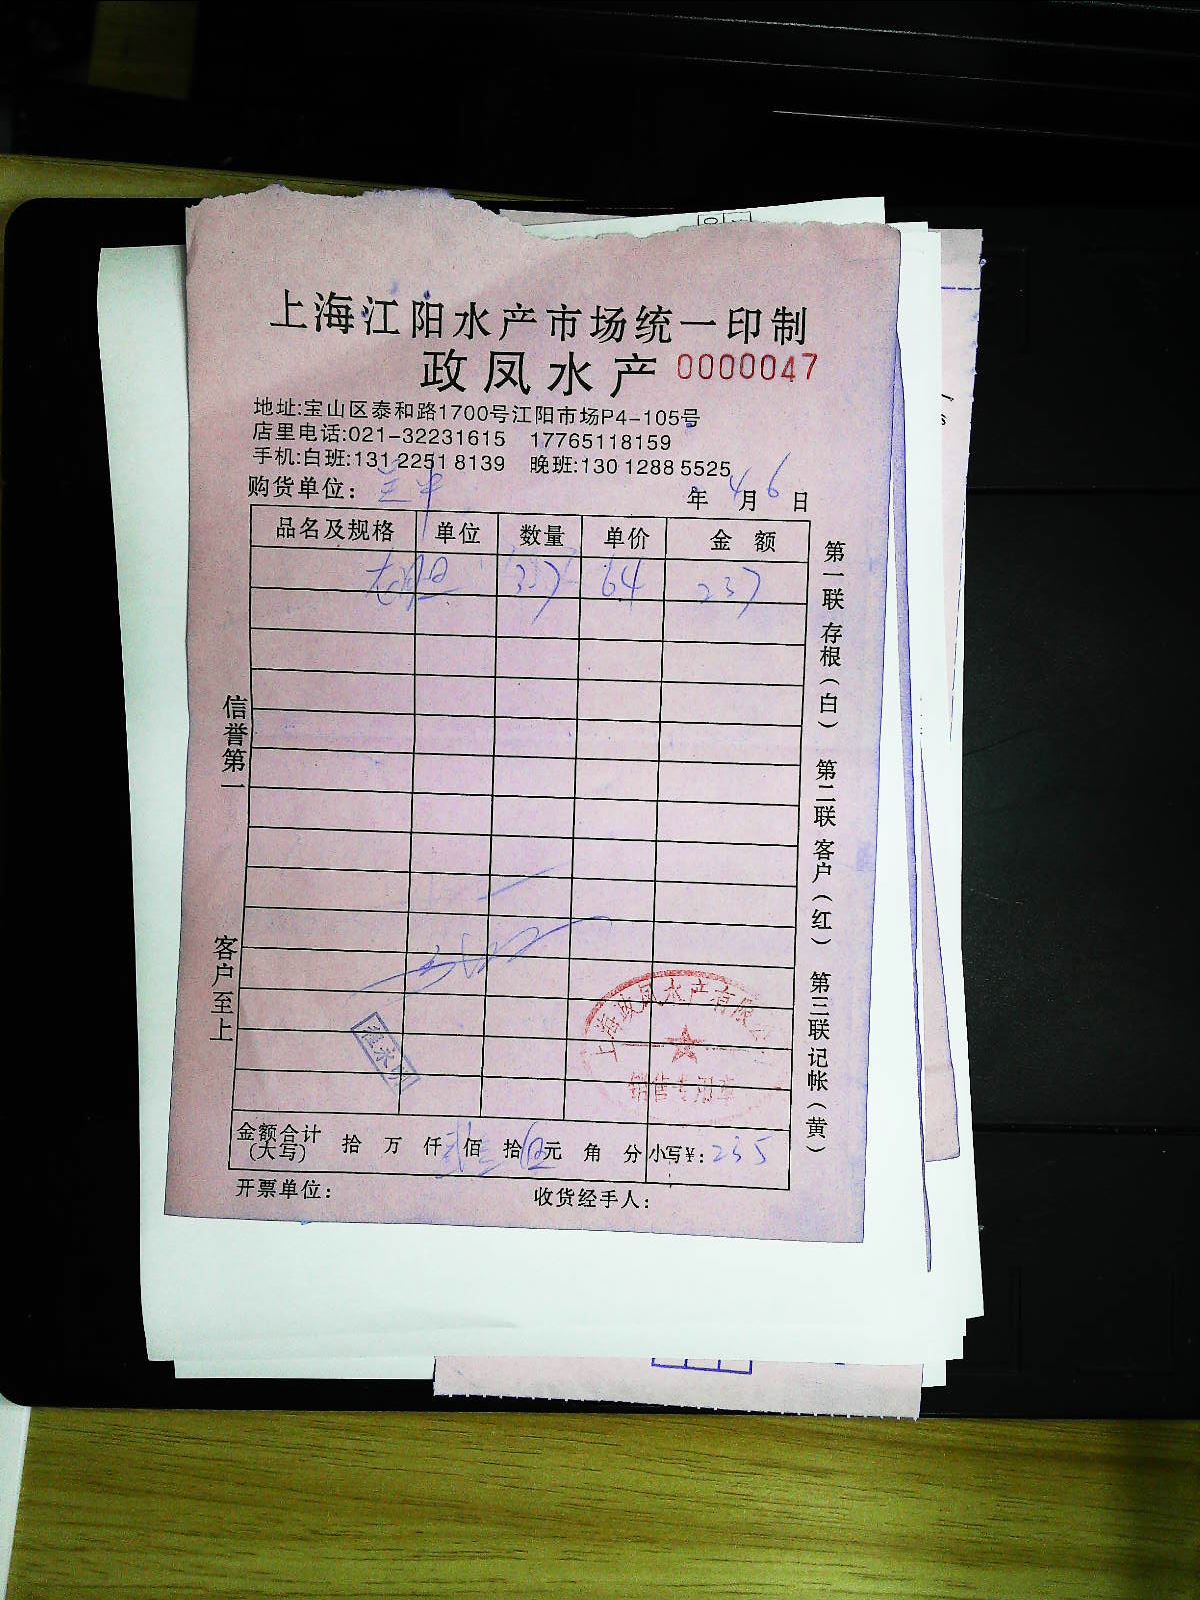 上海江阳水产市场统一印制
政凤水产 0000047
地址:宝山区泰和路1700号江阳市场P4-105号
店里电话:021-32231615 17765118159
手机:白班:131 2251 8139 晚班:130 1288 5525
购货单位: 年 4月 6日
品名及规格 单位 数量 单价 金额
64 237
信誉第一
客户至上
第一联 存根(白) 第二联 客户(红) 第三联 记帐(黄)
上海政凤水产有限公
销售专用章
金额合计(大写) 拾 万 仟 贰佰 叁拾 伍元 角 分 小写¥: 235
开票单位: 收货经手人: